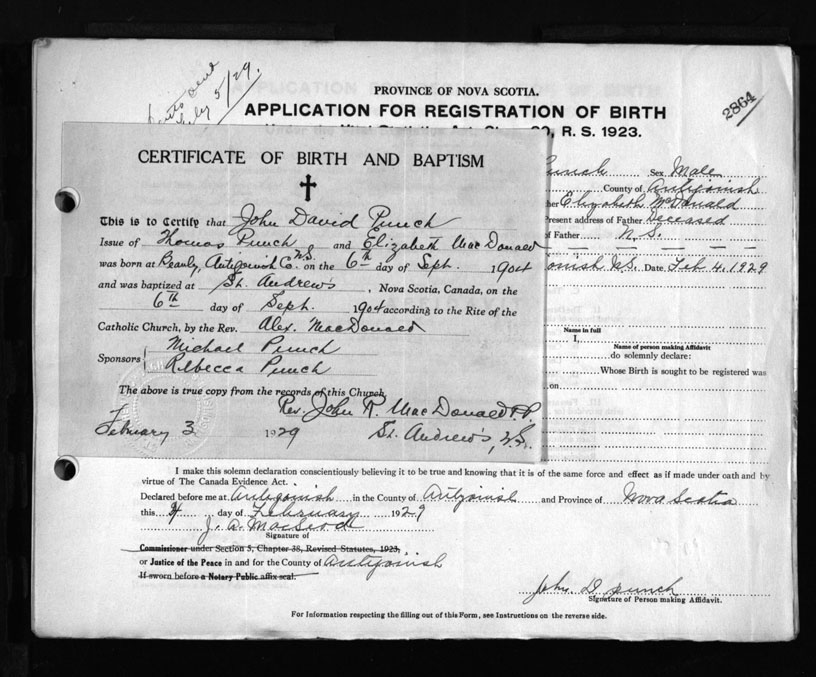 sent
5/29.
PROVINCE OF NOVA SCOTIA.
APPLICATION FOR REGISTRATION OF BIRTH
2864
R. S. 1923.
CERTIFICATE OF BIRTH AND BAPTISM
This is to Certify that John David Punch
Issue of Thomas Punch and Elizabeth MacDonald
was born at Beauly, Antigonish Co. N.S. on the 6th day of Sept. 1904
and was baptized at St. Andrews, Nova Scotia, Canada, on the
6th day of Sept. 1904 according to the Rite of the
Catholic Church, by the Rev. Alex. MacDonald
Sponsors Michael Punch
Rebecca Punch
The above is true copy from the records of this Church
Rev. John R. MacDonald P.P.
February 3 1929 St. Andrew's, N.S.
Sex Male
County of Antigonish
Elizabeth McDonald
Present address of Father Deceased
of Father N. S.
N.S. Date Feb 4, 1929
Name in full
I,
Name of person making Affidavit
do solemnly declare:
Whose Birth is sought to be registered was
on
I make this solemn declaration conscientiously believing it to be true and knowing that it is of the same force and effect as if made under oath and by
virtue of The Canada Evidence Act.
Declared before me at Antigonish in the County of Antigonish and Province of Nova Scotia
this 4 day of February 1929
J. A. MacLeod
Signature of
Commissioner under Section 5, Chapter 38, Revised Statutes, 1923,
or Justice of the Peace in and for the County of Antigonish
If sworn before a Notary Public affix seal.
John D Punch
Signature of Person making Affidavit.
For Information respecting the filling out of this Form, see Instructions on the reverse side.